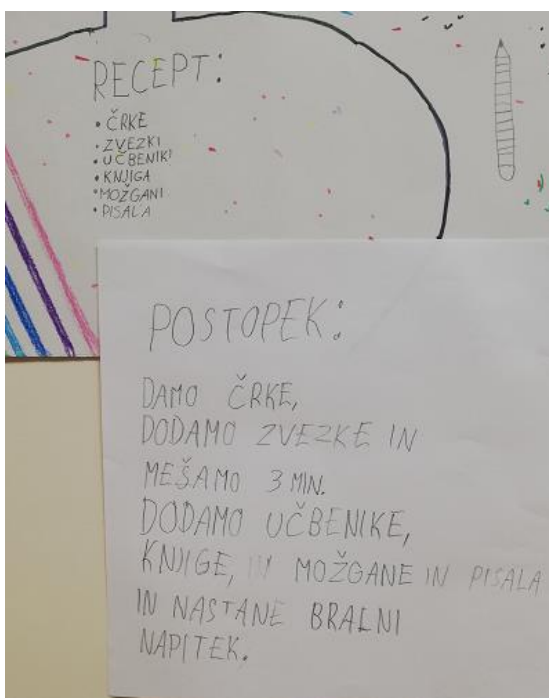 RECEPT:
• ČRKE
• ZVEZKI
• UČBENIKI
• KNJIGA
• MOŽGANI
• PISALA
POSTOPEK:
DAMO ČRKE,
DODAMO ZVEZKE IN
MEŠAMO 3 MIN.
DODAMO UČBENIKE,
KNJIGE, IN MOŽGANE IN PISALA
IN NASTANE BRALNI
NAPITEK.